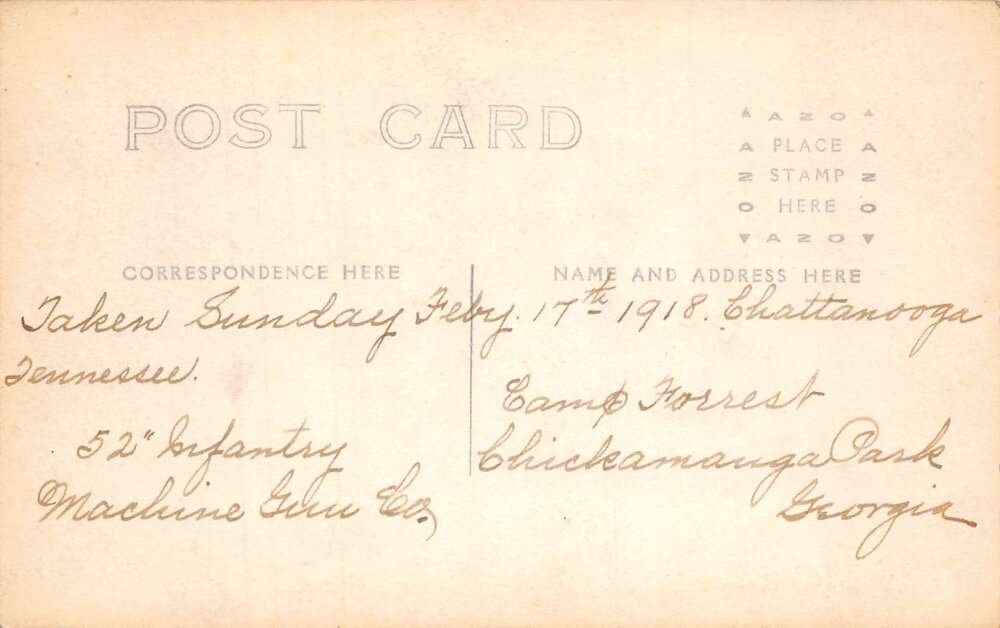 POST CARD
▲ AZO ▲
A PLACE A
Z STAMP Z
O HERE O
▼ AZO ▼
CORRESPONDENCE HERE
NAME AND ADDRESS HERE
Taken Sunday Feby. 17th 1918. Chattanooga
Tennessee.
52" Infantry
Machine Gun Co,
Camp Forrest
Chickamauga Park
Georgia